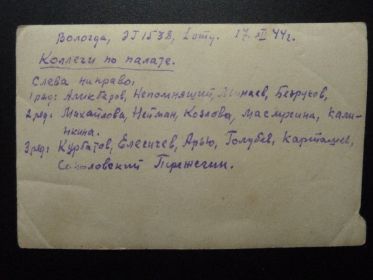 Вологда, ЭГ 1538, 2 отд. 17.XII 44г.
Коллеги по палате.
Слева направо:
1 ряд: Аликберов, Непомнящий, Минаев, Безруков,
2 ряд: Михайлова, Нейман, Козлова, Масляргина, Кали-
нкина.
3 ряд: Курбатов, Елесичев, Арью, Голубев, Карташев,
Соколовский